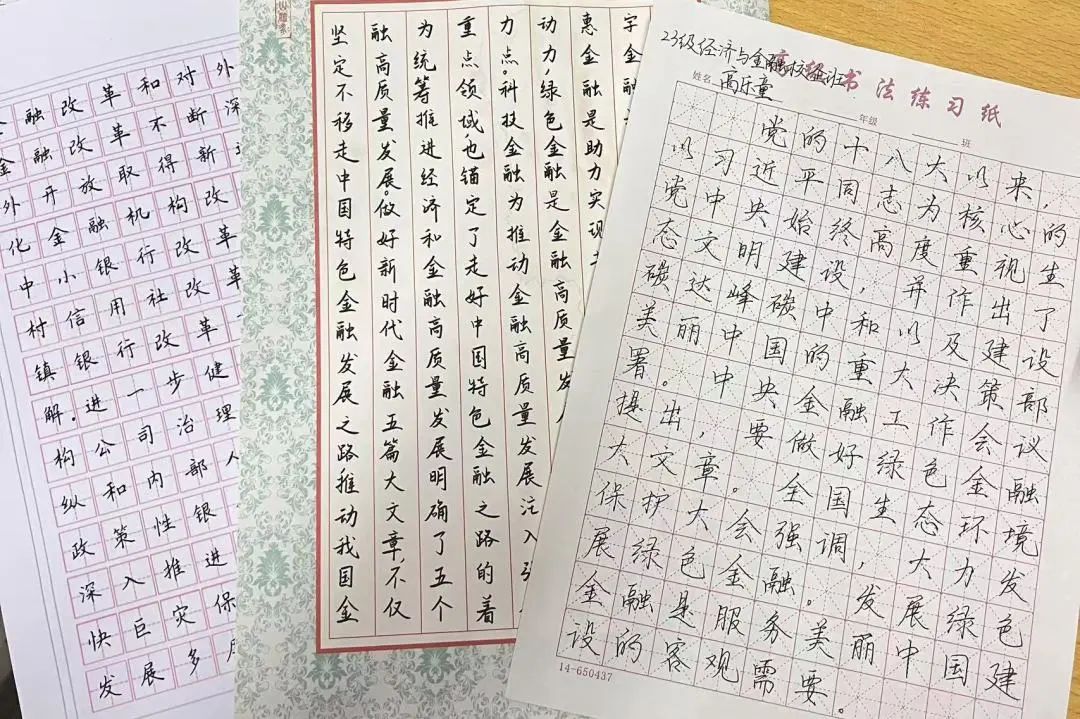 金融改革和对外
金融改革不断深
外开放取得新
化金融机构改
中小银行改革
村信用社改革
镇银行改革
解。进一步健
构公司治理
纵和内部人
政策性银
深入推进
快巨灾保
发展多
字金融
惠金融是助力实现
动力,绿色金融是金融高质量发
力点。科技金融为推动金融高质量发展注入强
重点领域,也锚定了走好中国特色金融之路的着
为统筹推进经济和金融高质量发展明确了五个
融高质量发展。做好新时代金融五篇大文章,不仅
坚定不移走中国特色金融发展之路推动我国金
书法练习纸
23级经济与金融校企班
姓名 高乐童 年级 班
党的十八大以来,
以习近平同志为核心的
党中央始终高度重视生
态文明建设,并作出了
碳达峰碳中和以及建设
美丽中国的重大决策部
署。中央金融工作会议
提出,要做好绿色金融
大文章。全国生态环境
保护大会强调,大力发
展绿色金融。发展绿色
金融是服务美丽中国建
设的客观需要。
14-650437